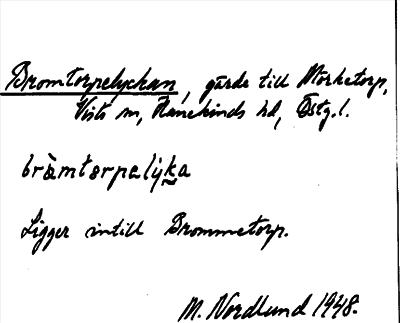 Bromtorpelyckan, gärde till Morketorp,
Vists sn, Hanekinds hd, Östg.l.
bràmtərpəlyka
Ligger intill Brommetorp.
M. Nordlund 1948.